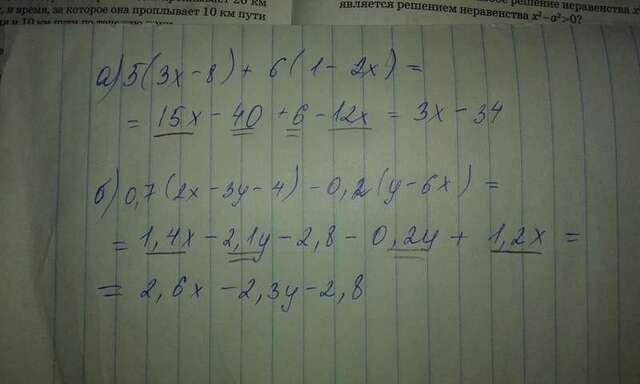 , и время, за которое она проплывает 10 км пути
является решением неравенства x²-a²>0?
а) 5(3x-8)+6(1-2x)=
=15x-40+6-12x=3x-34
б) 0,7(2x-3y-4)-0,2(y-6x)=
=1,4x-2,1y-2,8-0,2y+1,2x=
=2,6x-2,3y-2,8